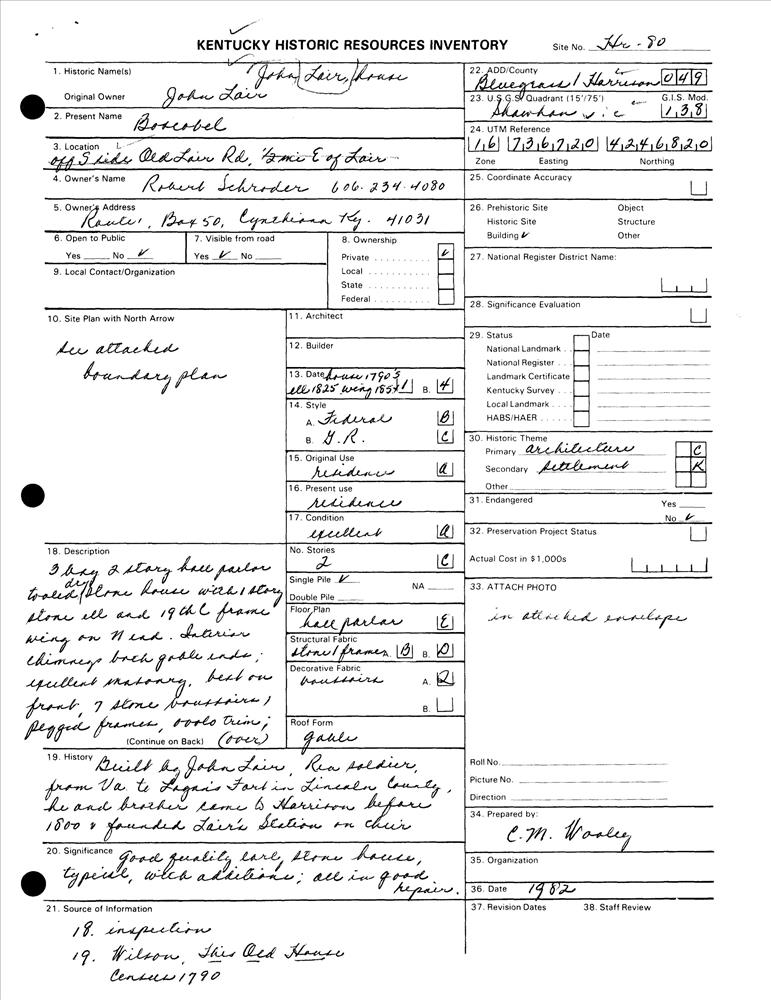 KENTUCKY HISTORIC RESOURCES INVENTORY
Site No. Hr-80
1. Historic Name(s) John Lair, house
Original Owner John Lair
2. Present Name Boscobel
3. Location
off S side Old Lair Rd, 1/2 mi E of Lair
4. Owner's Name Robert Schroder 606-234-4080
5. Owner's Address
Route 1, Box 50, Cynthiana Ky. 41031
6. Open to Public
Yes No ✓
7. Visible from road
Yes ✓ No
8. Ownership
Private ✓
Local
State
Federal
9. Local Contact/Organization
10. Site Plan with North Arrow
see attached
boundary plan
11. Architect
12. Builder
13. Date house 1790s
ell 1825 wing 185 B. 4
14. Style
A. Federal B
B. G.R. C
15. Original Use
residence a
16. Present use
residence
17. Condition
excellent a
No. Stories
2 C
Single Pile ✓ NA
Double Pile
Floor Plan
hall parlor E
Structural Fabric
stone/frame A. B B. D
Decorative Fabric
voussoirs A. 2
B.
Roof Form
gable
18. Description
3 bay 2 story hall parlor
dry
tooled stone house with 1 story
stone ell and 19th C frame
wing on N end. Interior
chimneys both gable ends;
excellent masonry, best on
front, 7 stone voussoirs,
pegged frames, ovolo trim;
(Continue on Back) (over)
19. History Built by John Lair, Rev soldier,
from Va. to Logan's Fort in Lincoln County,
he and brother came to Harrison before
1800 & founded Lair's Station on their
20. Significance Good quality early stone house,
typical, with additions; all in good
repair.
21. Source of Information
18. inspection
19. Wilson, This Old House
Census 1790
22. ADD/County
Bluegrass/Harrison 049
23. U.S.G.S. Quadrant (15'/75') G.I.S. Mod.
Shawhan 138
24. UTM Reference
16 736720 4246820
Zone Easting Northing
25. Coordinate Accuracy
26. Prehistoric Site Object
Historic Site Structure
Building ✓ Other
27. National Register District Name:
28. Significance Evaluation
29. Status Date
National Landmark
National Register
Landmark Certificate
Kentucky Survey
Local Landmark
HABS/HAER
30. Historic Theme
Primary architecture C
Secondary settlement K
Other
31. Endangered Yes
No ✓
32. Preservation Project Status
Actual Cost in $1,000s
33. ATTACH PHOTO
in attached envelope
Roll No.
Picture No.
Direction
34. Prepared by:
C.M. Wooley
35. Organization
36. Date 1982
37. Revision Dates 38. Staff Review